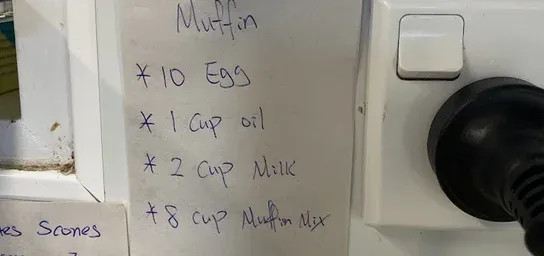 Muffin
* 10 Egg
* 1 cup oil
* 2 cup Milk
* 8 cup Muffin Mix
Scones